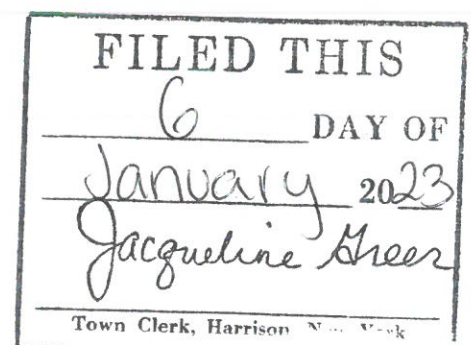 FILED THIS
6 DAY OF
January 2023
Jacqueline Greer
Town Clerk, Harrison New York